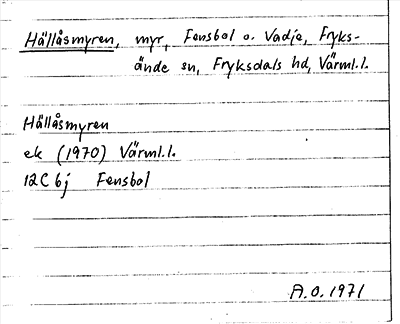 Hällåsmyren, myr, Fensbol o. Vadje, Fryks-
ände sn, Fryksdals hd, Värml.l.
Hällåsmyren
ek (1970) Värml.l.
12C 6j Fensbol
A.O. 1971